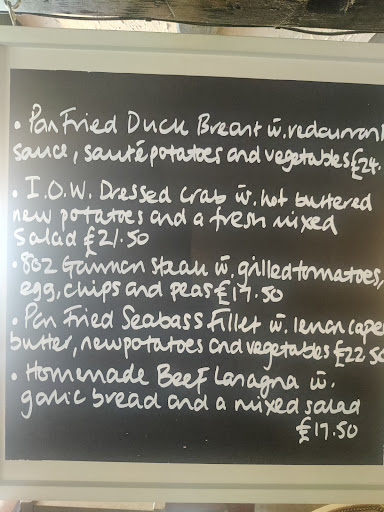 • Pan Fried Duck Breast w. redcurrant
sauce, sauté potatoes and vegetables £24.
• I.O.W. Dressed Crab w. hot buttered
new potatoes and a fresh mixed
salad £21.50
• 8oz Gammon Steak w. grilled tomatoes,
egg, chips and peas £17.50
• Pan Fried Seabass Fillet w. lemon cape
butter, new potatoes and vegetables £22.50
• Homemade Beef Lasagna w.
garlic bread and a mixed salad
£17.50